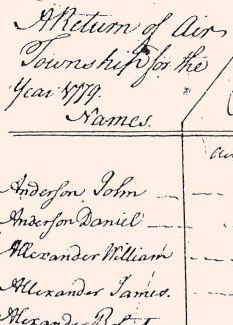 A Return of Air
Township for the
Year 1779.
Names.
Anderson John
Anderson Daniel
Allexander William
Allexander James.
Alexander